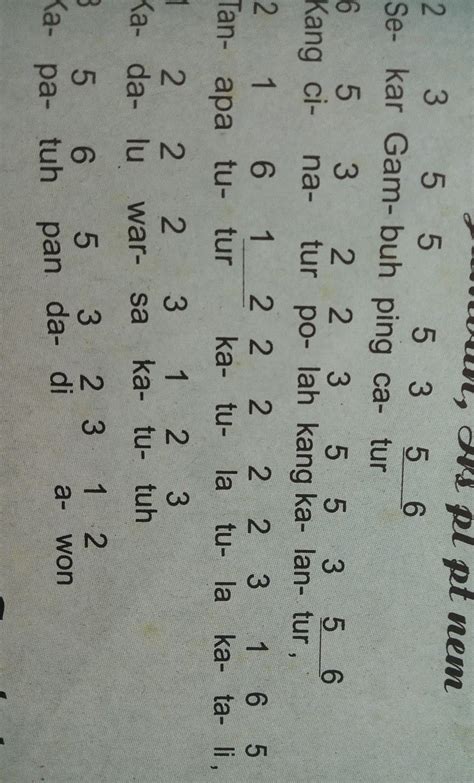 Lrs pl pt nem
2 3 5 5 5 3 5 6
Se- kar Gam- buh ping ca- tur
6 5 3 2 2 3 5 5 3 5 6
Kang ci- na- tur po- lah kang ka- lan- tur ,
2 1 6 1 2 2 2 2 2 3 1 6 5
Tan- apa tu- tur ka- tu- la tu- la ka- ta- li ,
1 2 2 2 3 1 2 3
Ka- da- lu war- sa ka- tu- tuh
3 5 6 5 3 2 3 1 2
Ka- pa- tuh pan da- di a- won